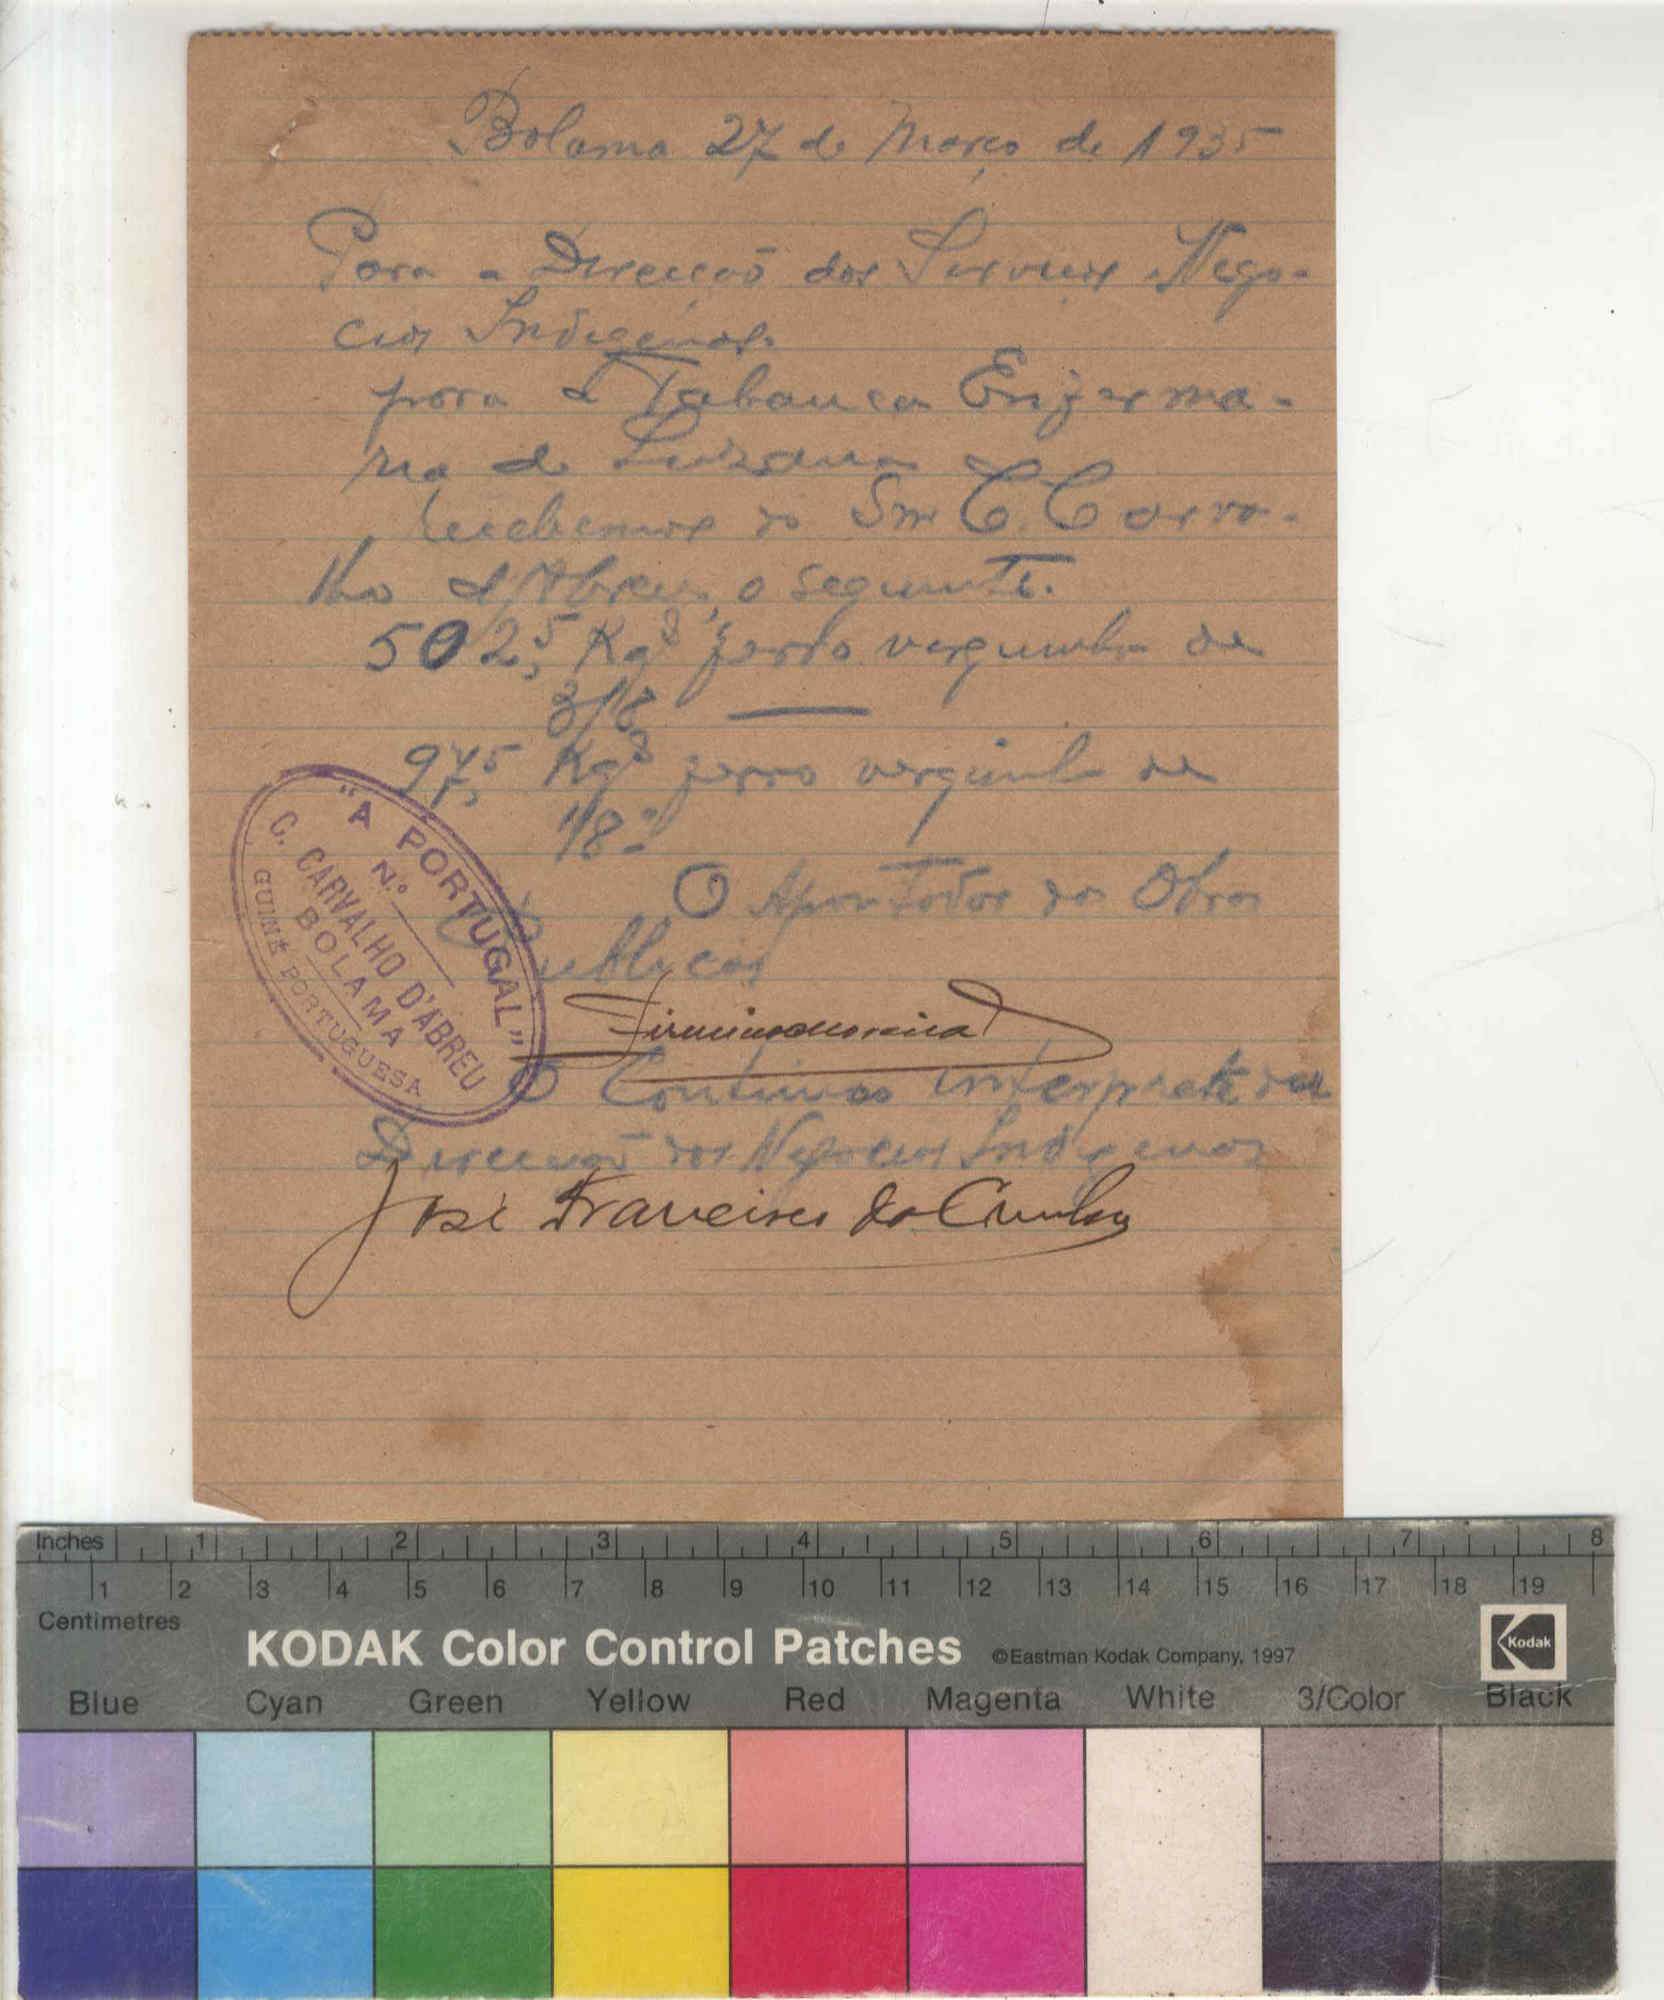 Bolama 27 de Março de 1935
Para a Direcção dos Serviços Nego-
cios Indigenas.
para a Tabanca Enferma-
ria de
Recebemos do Snr C. Carva-
lho d'Abreu, o seguinte.
502,5 Kgs ferro verguinha de
3/8
97,5 Kgs ferro verguinha de
1/8
O Apontador das Obras
Publicas
"A PORTUGAL"
N.º
C. CARVALHO D'ABREU
BOLAMA
GUINÉ PORTUGUESA
O Continuo interprete da
Direcção dos Negocios Indigenas
José Francisco da Cunha
Inches 1 2 3 4 5 6 7 8
1 2 3 4 5 6 7 8 9 10 11 12 13 14 15 16 17 18 19
Centimetres
KODAK Color Control Patches ©Eastman Kodak Company, 1997 Kodak
Blue Cyan Green Yellow Red Magenta White 3/Color Black